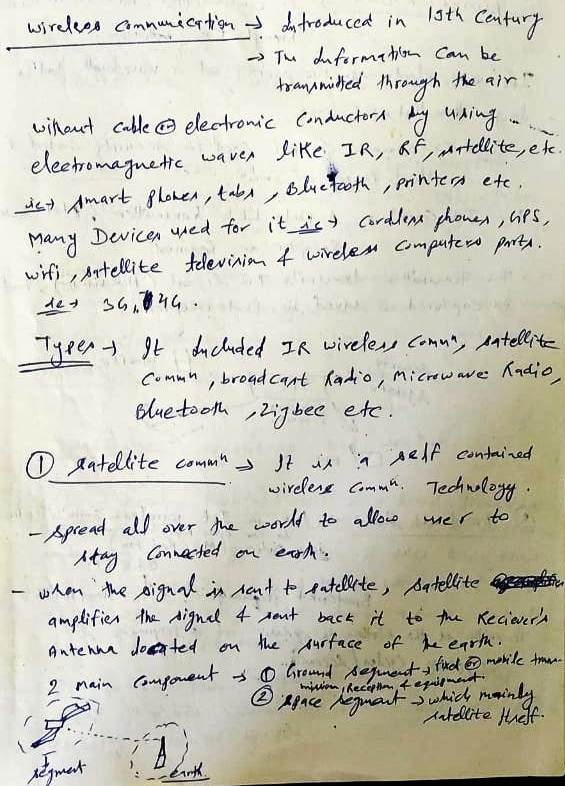 wireless communication → Introduced in 19th Century
→ The Information can be
transmitted through the air
without cable or electronic conductors by using
electromagnetic waves like IR, RF, satellite, etc.
ie → smart phones, tabs, Bluetooth, printers etc.
Many Devices used for it ie → cordless phones, GPS,
wifi, satellite television & wireless computers parts.
ie → 3G, 4G.
Types → It Included IR wireless Commn, satellite
Commn, broadcast Radio, Microwave Radio,
Bluetooth, Zigbee etc.
① satellite commn → It is a self contained
wireless Commn. Technology.
- spread all over the world to allow user to
stay Connected on earth.
- when the signal is sent to satellite, satellite
amplifies the signal & sent back it to the Reciever's
Antenna located on the surface of the earth.
2 main component → ① Ground segment → fixed or mobile trans-
mission, Reception, & equipment.
② space segment → which mainly
satellite itself.
segment
earth